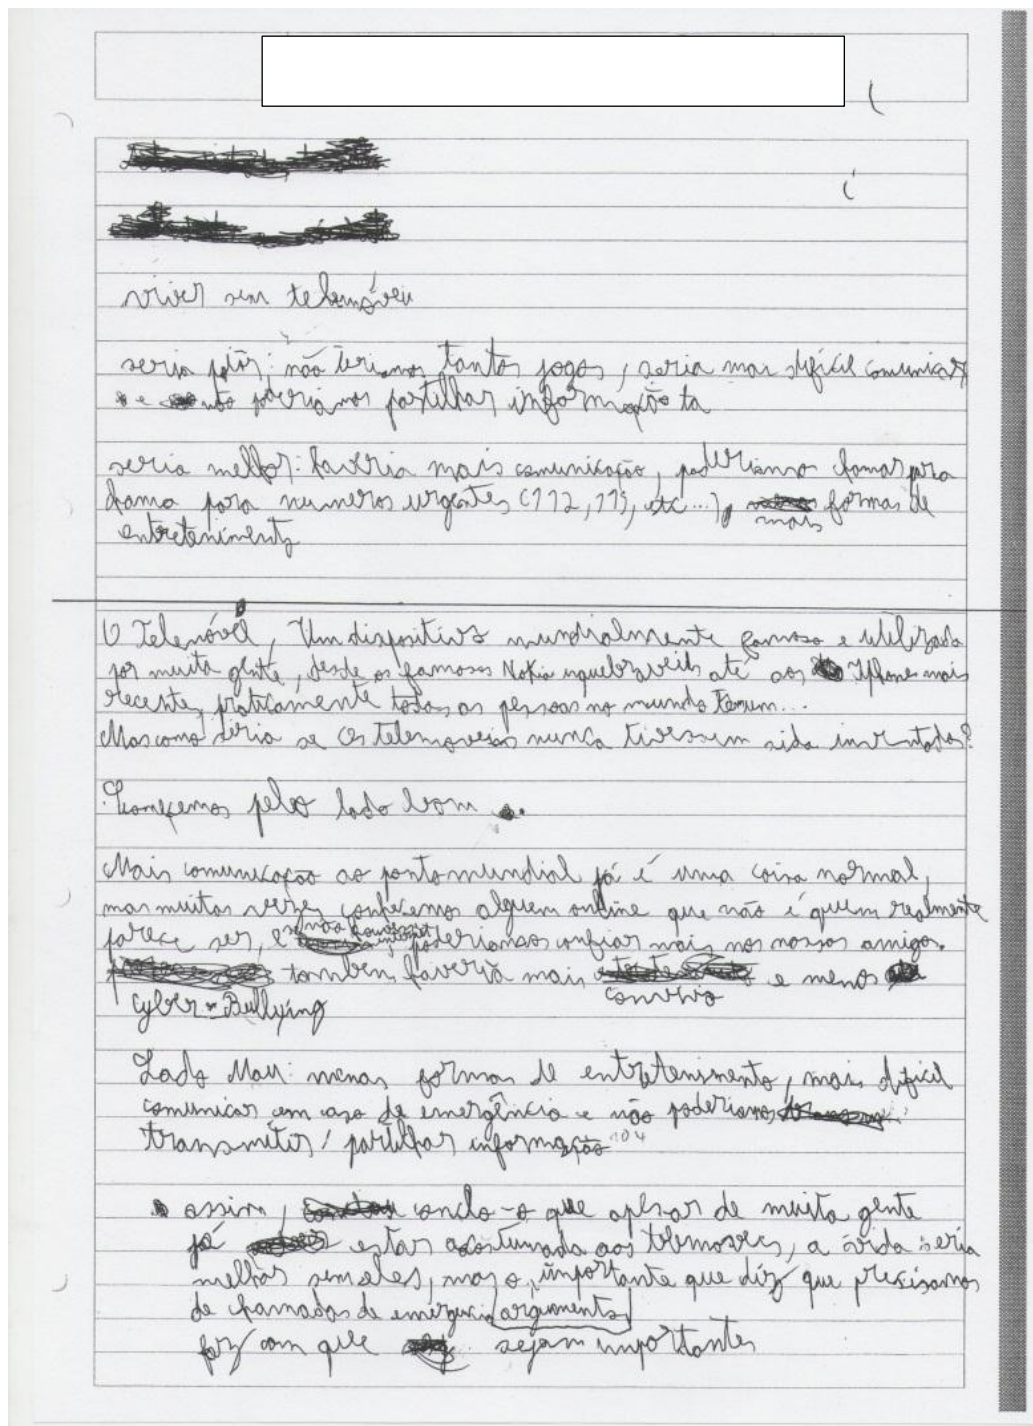 viver sem telemóveu
seria piór: não teriamos tantos jogos, seria mai dificil comunicar
e não poderiamos partilhar informação ta
seria melhor: haveria mais comunicação, poderiamo chamar para
chama para numeros urgentes (112, 115, etc...), mais formas de
entretenimento
O Telemóvel, Um dispositivo mundialmente famoso e utilizado
por muita gente, desde os famosos Nokia inquebraveis até aos Iphones mais
recentes, praticamente todas as pessoas no mundo tem um...
Mas como seria se os telemoveis nunca tivessem sido inventados?
Comecemos pelo lado bom
Mais comunicação ao ponto mundial já é uma coisa normal,
mas muitas vezes conhecemos alguem online que não é quem realmente
parece ser, e se não houvesse internet poderiamos confiar mais nos nossos amigos.
tambem haveria mais convivio e menos
cyber-Bullying
Lado Mau: menas formas de entretenimento, mais dificil
comunicar em caso de emergência e não poderiamos
transmitir/partilhar informação 104
assim, conclo-o que apesar de muita gente
já estar acostumada aos telemoveis, a vida seria
melhor sem eles, mas o importante que diz que precisamos
de chamadas de emergencia argumento
faz com que sejam importantes